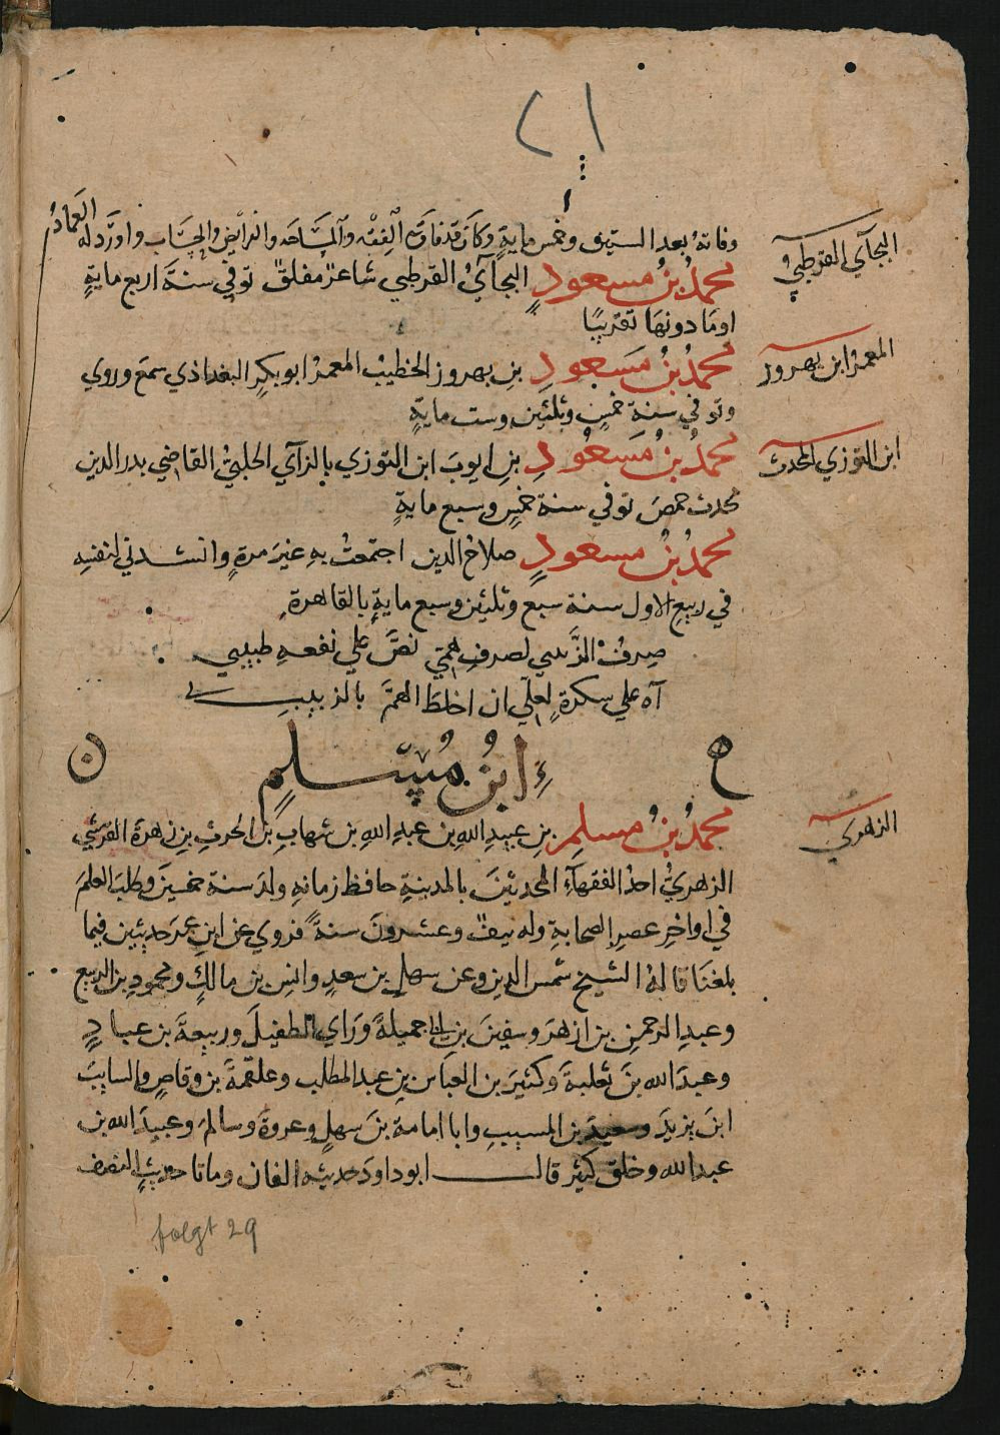 ٢١
وفاته بعد الستين وخمس ماية وكان قد فاق في الفقه والمساحه والفرايض والحساب واورد له العماد
البجآي القرطبي
محمد بن مسعود البجآيُ القرطبي شاعرٌ مفلقٌ توفي سنة اربع مايةٍ
او ما دونها تقريبًا
المعمر ابن بهروز
محمدُ بنُ مَسعودِ بنِ بهروز الخطيبُ المعمرُ ابو بكرٍ البغداذي سمعَ وروي
وتوفي سنة خمسٍ وثلثين وست مايةٍ
ابن التوزي المحدث
محمدُ بنُ مَسعُودِ بنِ ايوبَ ابن التوزي بالزآي الحلبيُّ القاضي بدر الدين
محدث حمصَ توفي سنة خمسٍ وسبع مايةٍ
محمدُ بنُ مسعودٍ صلاحُ الدين اجتمعتُ بهِ غيرَ مرةٍ وانشدني لنفسِهِ
في ربيع الاول سنة سبع وثلثين وسبع مايةٍ بالقاهرةِ
صرفتُ الزَبيبي لصرفِ همي نصَّ علي نفعهِ طبيبي
آه علي سكرةٍ لعلّي ان اخلطَ الهمَّ بالزبيبِ
ابنُ مُسلمٍ
ن
الزهري
محمدُ بنُ مسلمِ بنِ عبيدِ اللهِ بن عبدِ اللهِ بن شهابِ بن الحرثِ بنِ زهرة القرشي
الزهريُّ احدُ الفقهآءِ المحدثينَ بالمدينةِ حافظُ زمانهِ ولدَ سنة خمسينَ وطلبَ العلمَ
في اواخرِ عصرِ الصحابةِ وله نيفٌ وعشرونَ سنةً فروي عن ابنِ عمرَ حديثين فيما
بلغنَا قالهُ الشيخ شمس الدين وعن سهلِ بن سعدٍ وانسِ بن مالكٍ ومحمودِ بن الربيع
وعبدِ الرحمنِ بن ازهرَ وسفينَ بن ابي جميلةَ وراي ابا الطفيلَ وربيعةَ بن عبادٍ
وعبدَ الله بنَ ثعلبةَ وكثيرَ بن العباس بن عبد المطلب وعلقمةَ بن وقاصٍ والسايبَ
ابنَ يزيدَ وسعيدَ بن المسيبِ وابا امامة بنَ سهلٍ وعروةَ وسالمَ وعبيدَ الله بن
عبد الله وخلق كثير قال ابو داود حديثه الفان وماتا حديثٍ النصف
folgt 29